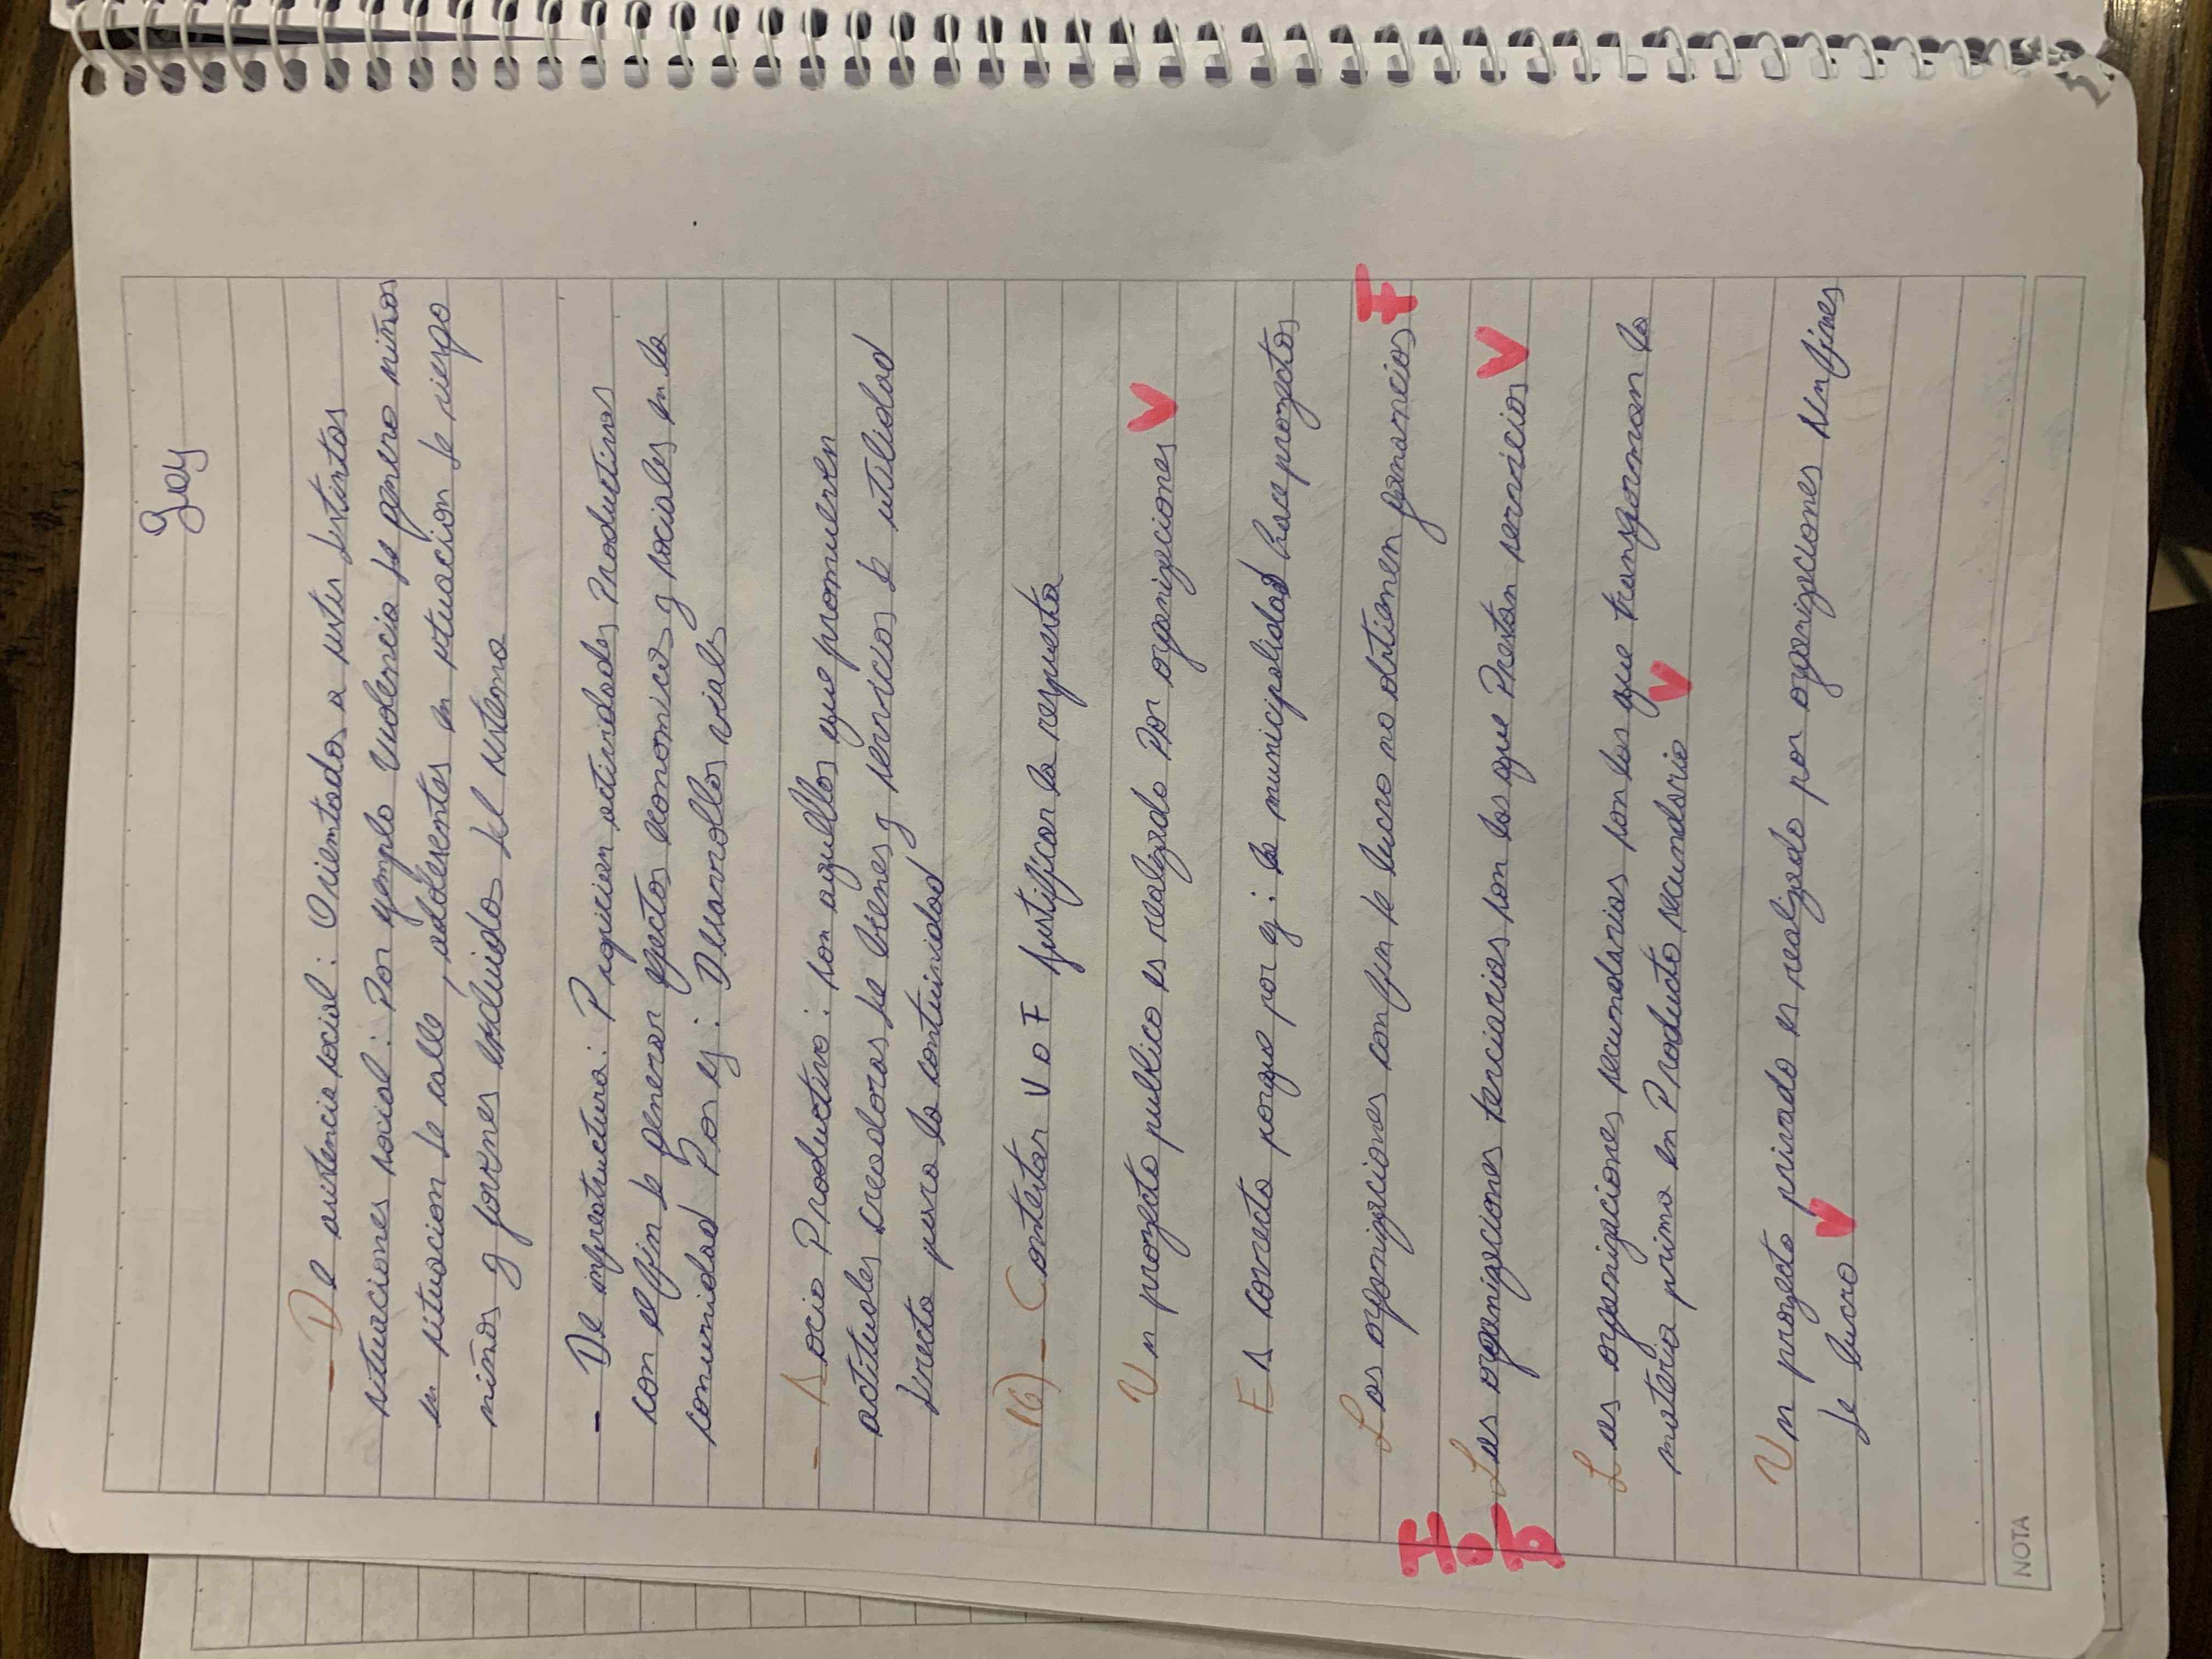 Joy
- De asistencia social: Orientados a ester distintas
situaciones social: Por ejemplo violencia de genero niños
en situacion de calle, adolecentes en situacion de riesgo
niños y jovenes excluidos del sistema
- De infraestructura: Propician actividades Productivas
con el fin de generar efectos economicos y sociales en la
comunidad Por ej: Desarrollos viales
- Socio Productivo: son aquellos que promueven
actitudes creadoras de bienes y servicios de utilidad
directa para la continuidad
16) - Contestar V o F Justificar la respuesta
Un proyecto publico es realizado Por organizaciones V
Es correcto porque por ej: la municipalidad hace proyectos
Las organizaciones con fin de lucro no obtienen ganancias F
Las organizaciones terciarias son las que Prestan servicios V
Las organizaciones secundarias son las que transforman la
materia prima en Producto secundario V
Un proyecto privado es realizado por organizaciones sin fines
de lucro V
NOTA